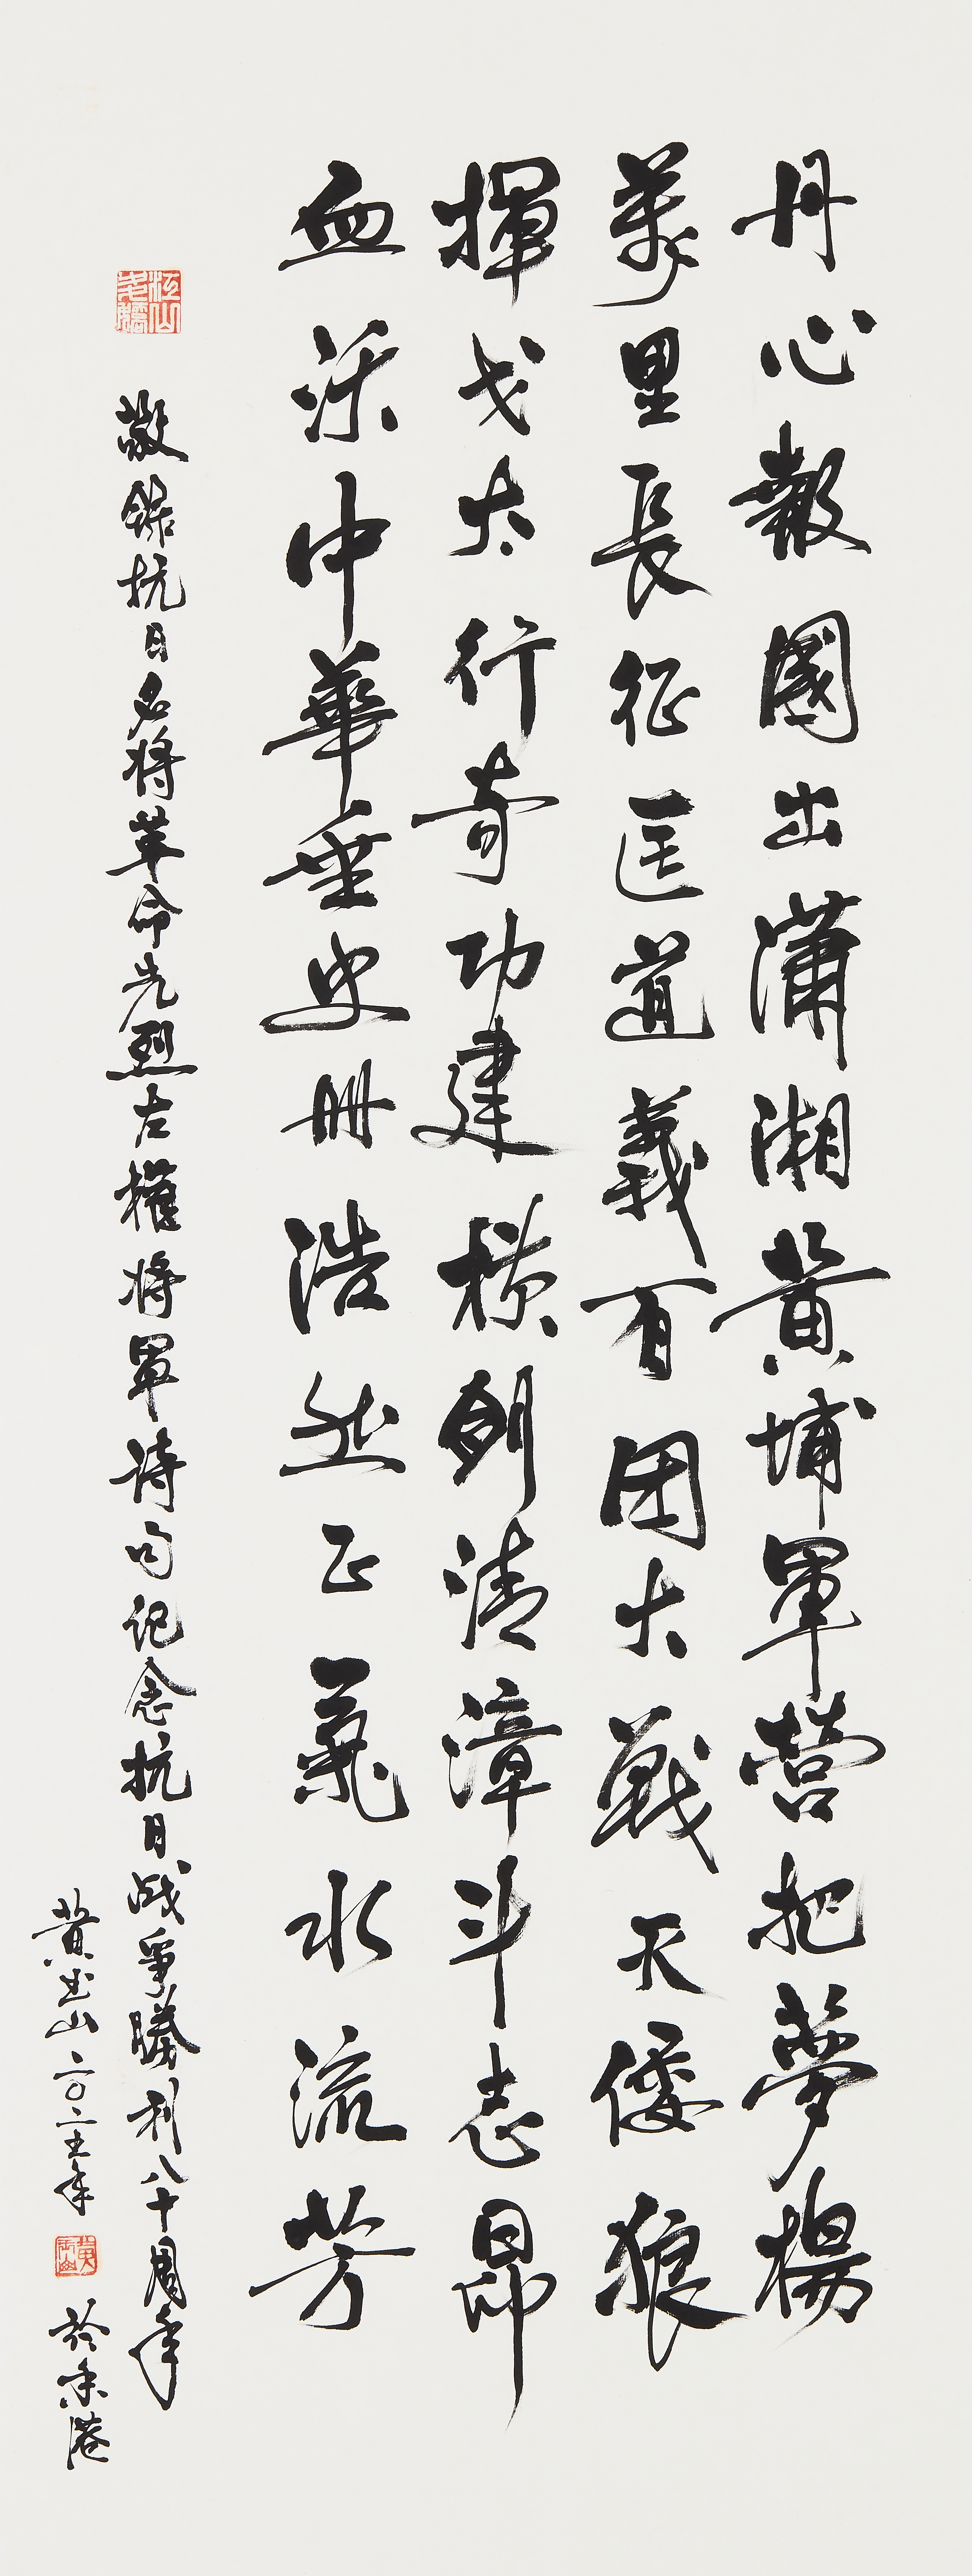 丹心報國出瀟湘黃埔軍營把夢揚
萬里長征匡道義百团大戰天倭狼
揮戈太行奇功建横劍清漳斗志昂
血沃中華垂史册浩然正氣水流芳
江山多嬌
敬錄抗日名将革命先烈左權将軍诗句记念抗日战爭勝利八十周年
黃玉山二〇二五年 於香港